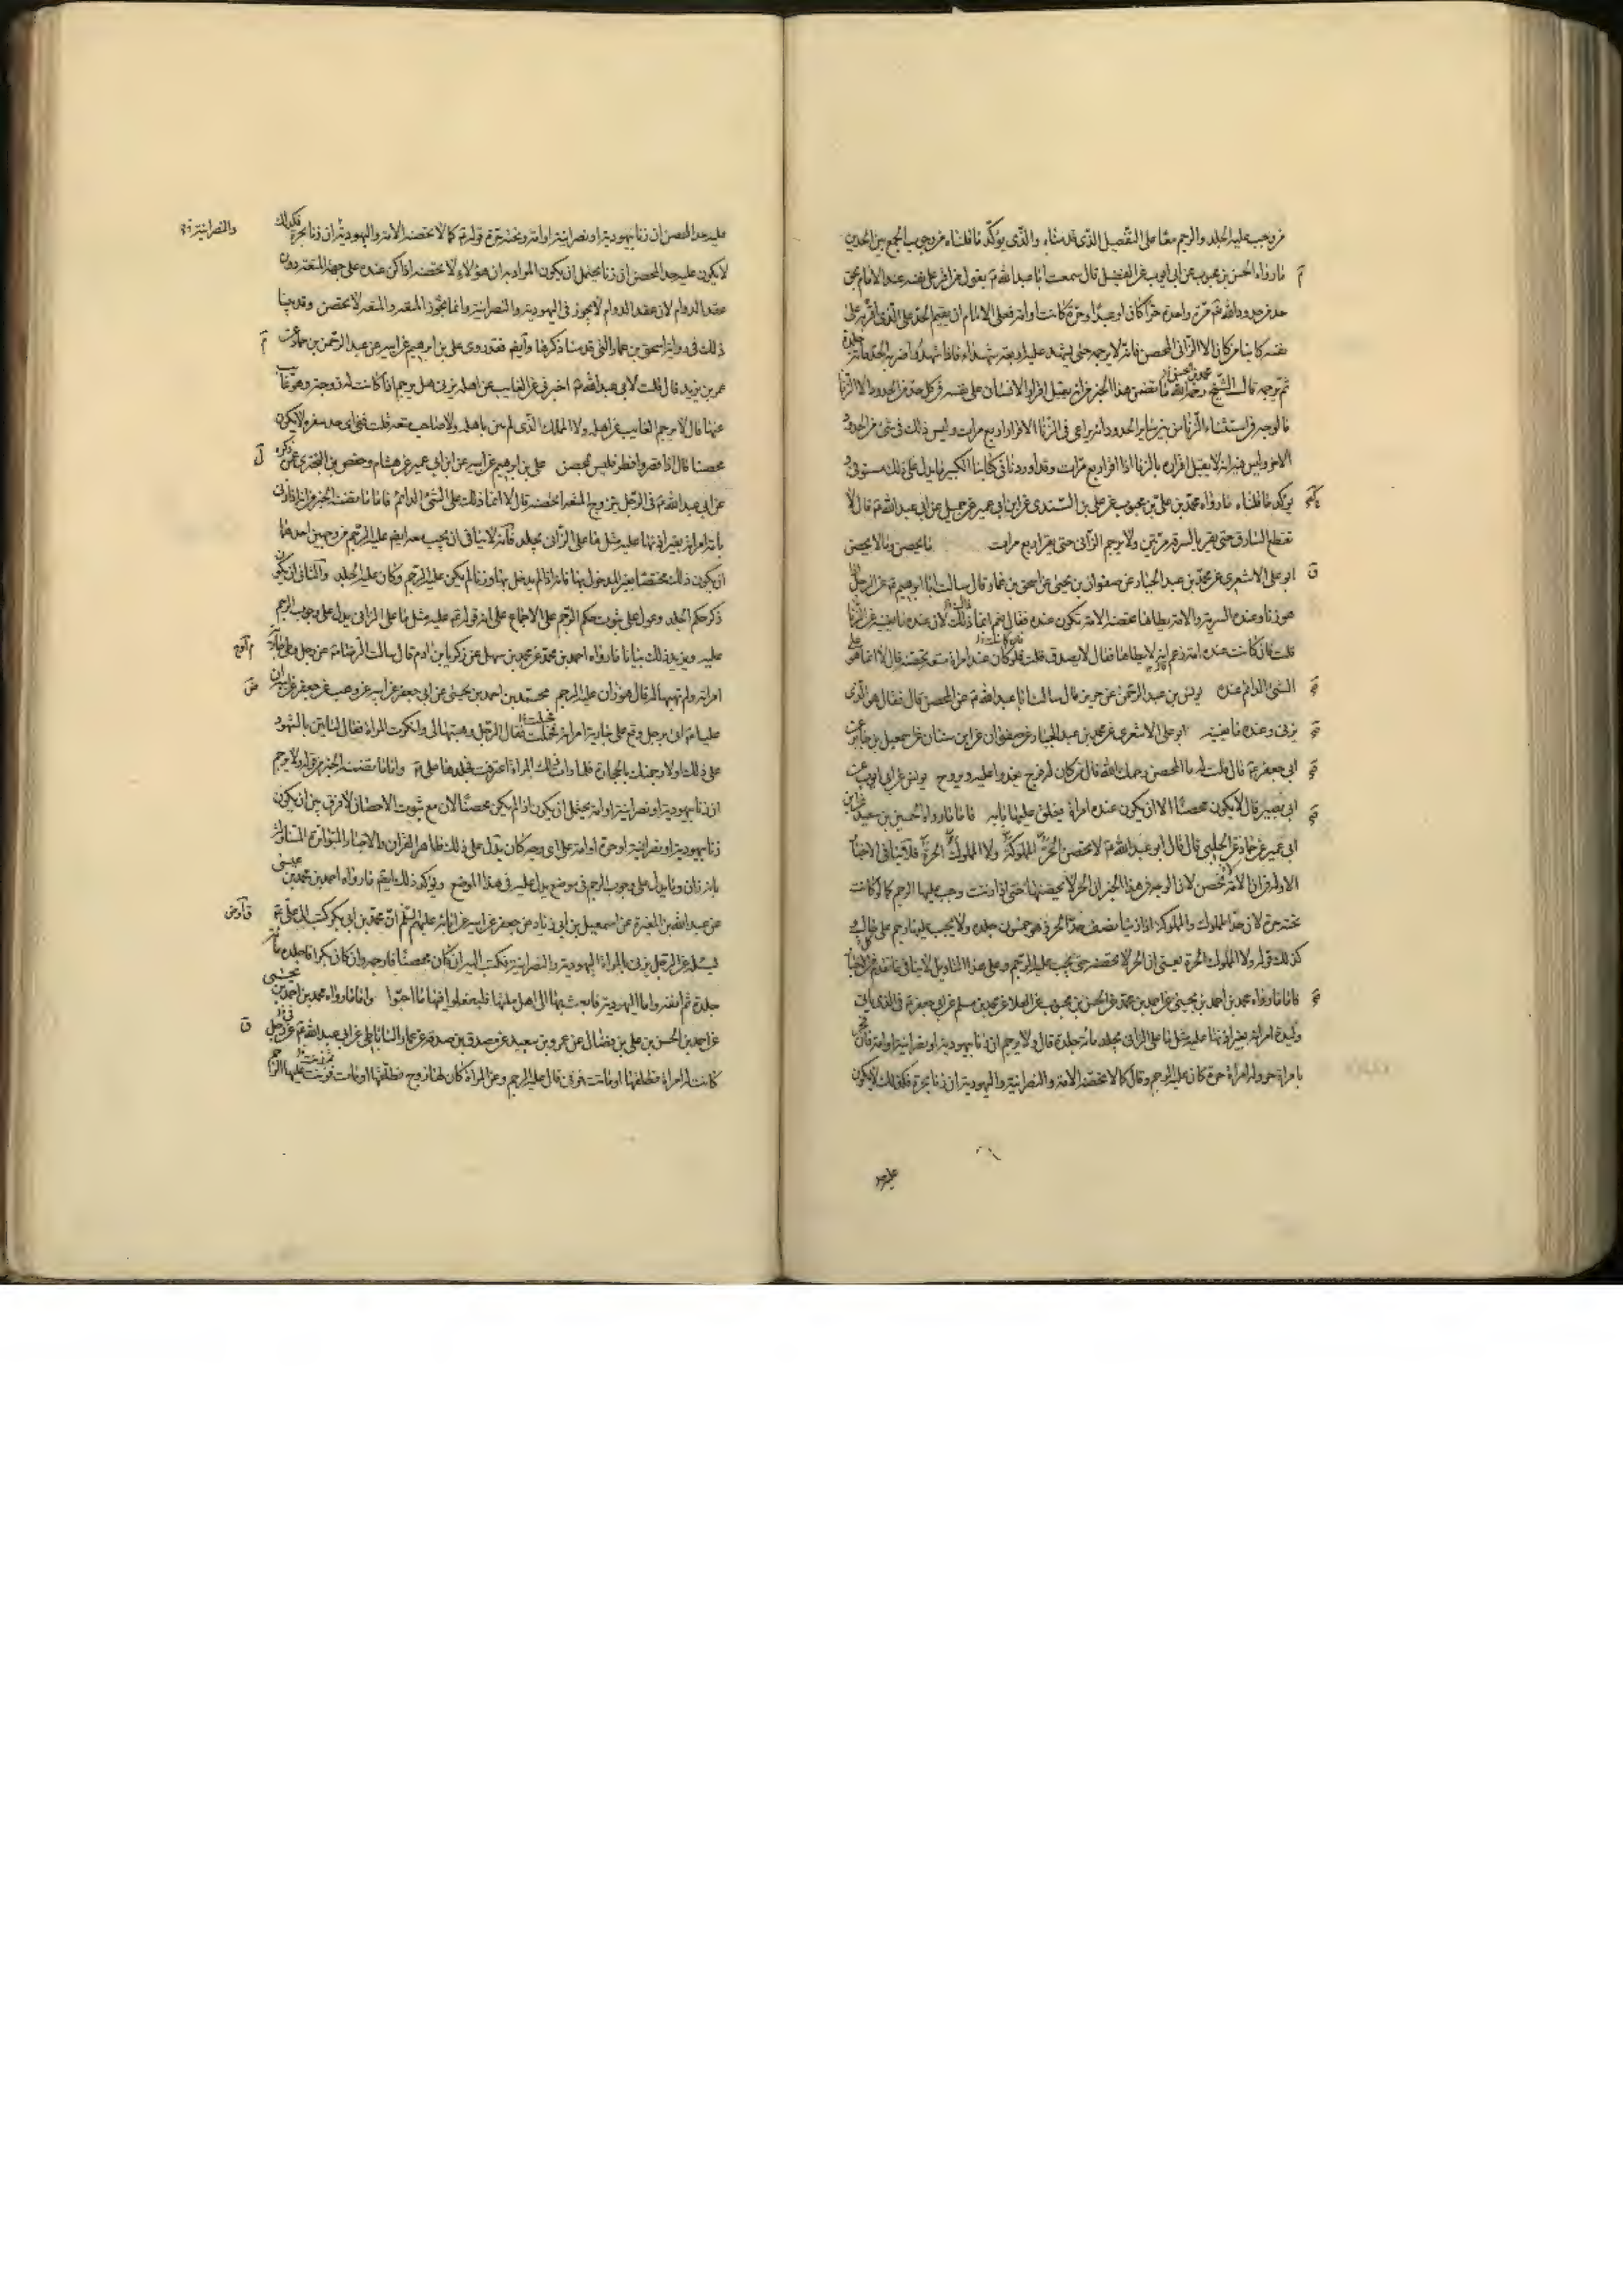 من وجب عليه الجلد والرجم معا على التفصيل الذى قدمناه والذى يؤكد ما قلناه من وجوب الجمع بين الحدين
ما رواه الحسن بن محبوب عن ابى ايوب عن الفضيل قال سمعت ابا عبد الله ع يقول من اقر على نفسه عند الامام بحق
حد من حدود الله مرة واحدة حرا كان او عبدا او حرة كانت او امة فعلى الامام ان يقيم الحد على الذى اقر به على
نفسه كاينا من كان الا الزانى المحصن فانه لا يرجمه حتى يشهد عليه اربعة شهداء فاذا شهدوا ضربه الحد مائة جلدة
ثم يرجمه قال الشيخ رحمه الله ما تضمن هذا الخبر من انه يقبل اقرار الانسان على نفسه فى كل حد من الحدود الا الزنا
فالوجه فى استثناء الزنا من بين ساير الحدود انه يراعى فى الزنا الاقرار اربع مرات وليس ذلك فى شئ من الحدود
الاخر وليس فيه انه لا يقبل اقراره بالزنا اذا اقر اربع مرات وقد اوردنا فى كتابنا الكبير ما يدل على ذلك مستوفى و
يؤكد ما قلناه ما رواه محمد بن على بن محبوب عن على بن السندى عن ابن ابى عمير عن جميل عن ابى عبد الله ع قال لا
تقطع السارق حتى يقر بالسرقة مرتين ولا يرجم الزانى حتى يقر اربع مرات ما يحصن وما لا يحصن
ابو على الاشعرى عن محمد بن عبد الجبار عن صفوان بن يحيى عن اسحق بن عمار قال سالت ابا ابراهيم ع عن الرجل اذا
هو زنا وعنده السرية والامة يطاها تحصنه الامة تكون عنده فقال نعم انما ذلك لان عنده ما يغنيه عن الزنا
قلت فان كانت عنده امة زعم انه لا يطاها فقال لا يصدق قلت فان كانت عنده امراة متعة تحصنه قال لا انما هو على
الشئ الدائم عنده يونس بن عبد الرحمن عن حريز قال سالت ابا عبد الله ع عن المحصن قال فقال هو الذى
يزنى وعنده ما يغنيه ابو على الاشعرى عن محمد بن عبد الجبار عن صفوان عن ابن سنان عن اسمعيل بن جابر عن
ابى جعفر ع قال قلت له ما المحصن رحمك الله قال من كان له فرج يغدوا عليه ويروح يونس عن ابى ايوب عن
ابى بصير قال لا يكون محصنا الا ان يكون عنده امراة يغلق عليها بابه فاما ما رواه الحسين بن سعيد عن ابن
ابى عمير عن حماد عن الحلبى قال قال ابو عبد الله ع لا يحصن الحر المملوكة ولا المملوك الحرة فلا ينافى الاخبار
الاولة من ان الامة تحصن لان الوجه فى هذا الخبر ان الحر لا يحصنها حتى اذا زنت وجب عليها الرجم كما لو كانت
تحته حرة لان حد المملوك والمملوكة اذا زنيا نصف حد الحر وهو خمسون جلدة ولا يجب عليهما رجم على حال و
كذلك قوله ولا المملوك الحرة يعنى ان الحر لا تحصنه حتى يجب عليه الرجم وعلى هذا التاويل لا ينافى ما تقدم من الاخبار
فاما ما رواه محمد بن احمد بن يحيى عن احمد بن محمد عن الحسن بن محبوب عن العلا عن محمد بن مسلم عن ابى جعفر ع فى الذى ياتى
وليدة امراته بغير اذنها عليه مثل ما على الزانى يجلد مائة جلدة قال ولا يرجم ان زنا بيهودية او نصرانية او امة فان
بامراة حرة وله امراة حرة كان عليه الرجم وقال كما لا تحصنه الامة والنصرانية واليهودية ان زنا بحرة فكذلك لا يكون
عليه حد
عليه حد المحصن ان زنا بيهودية او نصرانية او امة وتحته حرة قوله ع كما لا تحصنه الامة واليهودية ان زنا بحرة فكذلك
والنصرانية
لا يكون عليه حد المحصن ان زنا يحتمل ان يكون المراد به ان هؤلاء لا تحصنه اذا كن عنده على جهة المتعة دون
عقد الدوام لان عقد الدوام لا يجوز فى اليهودية والنصرانية وانما يجوز المتعة والمتعة لا تحصن وقد بينا
ذلك فى رواية اسحق بن عمار التى قدمنا ذكرها وايضا فقد روى على بن ابراهيم عن ابيه عن عبد الرحمن بن حماد عن
عمر بن يزيد قال قلت لابى عبد الله ع اخبرنى عن الغايب عن اهله يزنى هل يرجم اذا كانت له زوجة وهو غايب
عنها قال لا يرجم الغايب عن اهله ولا المملك الذى لم يبن باهله ولا صاحب متعة قلت ففى اى حد سفره لا يكون
محصنا قال اذا قصر وافطر فليس بمحصن على بن ابراهيم عن ابيه عن ابن ابى عمير عن هشام وحفص بن البخترى عمن ذكره
عن ابى عبد الله ع فى الرجل يتزوج المتعة اتحصنه قال لا انما ذلك على الشئ الدائم فاما ما تضمن الخبر من انه اذا زنى
بامة امراته بغير اذنها عليه مثل ما على الزانى يجلد فانه لا ينافى ان يجب معه ايضا عليه الرجم من وجهين احدهما
ان يكون ذلك مختصا بغير المدخول بها فانه اذا لم يدخل بها وزنا لم يكن عليه الرجم وكان عليه الجلد والثانى ان يكون
ذكر حكم الجلد وعول على ثبوت حكم الرجم على الاجماع على انه قوله ع عليه مثل ما على الزانى يدل على وجوب الرجم
عليه ويزيد ذلك بيانا ما رواه احمد بن محمد عن محمد بن سهل عن زكريا بن ادم قال سالت الرضا ع عن رجل وطى جارية
امراته ولم تهبها له قال هو زان عليه الرجم محمد بن احمد بن يحيى عن ابى جعفر عن ابيه عن وهب عن جعفر عن ابيه ان
عليا ع اتى برجل وقع على جارية امراته فحملت فقال الرجل وهبتها لى وانكرت المراة فقال لتاتينى بالشهود
على ذلك او لارجمنك بالحجارة فلما رات ذلك المراة اعترفت فجلدها على ع واما ما تضمنه الخبر من قوله ولا يرجم
ان زنا بيهودية او نصرانية او امة يحتمل ان يكون اذا لم يكن محصنا لان مع ثبوت الاحصان لا فرق بين ان يكون
زنا بيهودية او نصرانية او حرة او امة على اى وجه كان يدل على ذلك ظاهر القران والاخبار المتواترة المتناولة
بانه زان وما يدل على وجوب الرجم فى موضع يدل عليه فى هذا الموضع ويؤكد ذلك ايضا ما رواه احمد بن محمد بن عيسى
عن عبد الله بن المغيرة عن اسمعيل بن ابى زياد عن جعفر عن ابيه عن ابائه عليهم السلم ان محمد بن ابى بكر كتب الى على ع
يسئله عن الرجل يزنى بالمراة اليهودية والنصرانية فكتب اليه ان كان محصنا فارجمه وان كان بكرا فاجلده مائة
جلدة ثم انفه واما اليهودية فابعث بها الى اهل ملتها فليفعلوا بها ما احبوا واما ما رواه محمد بن احمد بن يحيى
عن احمد بن الحسن بن على بن فضال عن عمرو بن سعيد عن مصدق بن صدقة عن عمار الساباطى عن ابى عبد الله ع عن رجل
كانت له امراة فطلقها او ماتت فزنى قال عليه الرجم وعن المراة كان لها زوج فطلقها او مات فزنت عليها الرجم